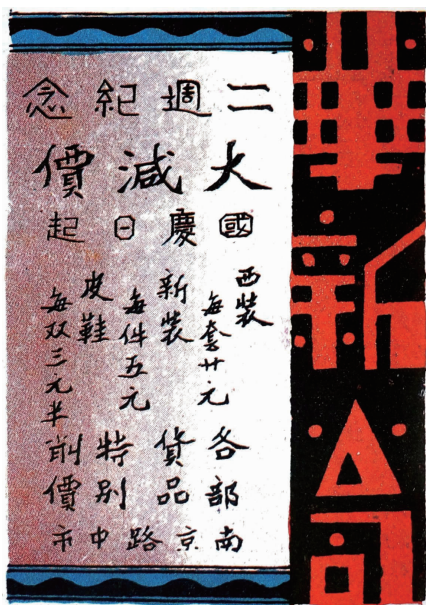 華新公司
二週紀念
大減價
國慶日起
西裝
每套廿元
新裝
每件五元
皮鞋
每双三元半
各部貨品特別削價
南京路中市